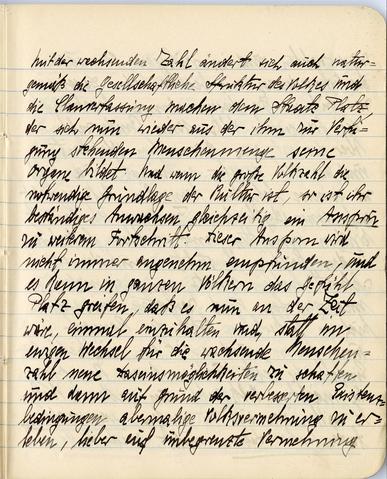 mit der wachsenden Zahl ändert sich auch natur-
gemäß die gesellschaftliche Struktur des Volkes und
die Clanverfassung machen dem Staate Platz,
der sich nun wieder aus der ihm zur Verfü-
gung stehenden Menschenmenge seine
Organe bildet. Und wenn die große Volkzahl die
notwendige Grundlage der Kultur ist, so ist ihr
beständiges Anwachsen gleichzeitig ein Ansporn
zu weiterem Fortschritt. Dieser Ansporn wird
nicht immer angenehm empfunden, und
es kann in ganzen Völkern das Gefühl
Platz greifen, daß es nun an der Zeit
wäre, einmal einzuhalten und, statt im
ewigen Wechsel für die wachsende Menschen-
zahl neue Daseinsmöglichkeiten zu schaffen
und dann auf Grund der verbesserten Existenz-
bedingungen abermalige Volksvermehrung zu er-
leben, lieber auf unbegrenzte Vermehrung